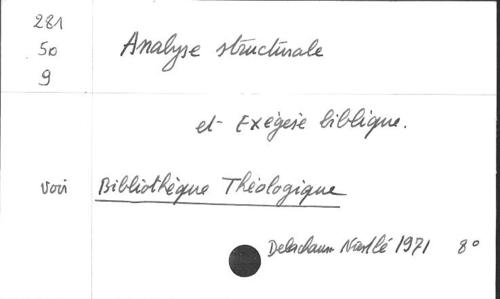 281
50
9
Analyse structurale
et Exégèse biblique.
voir Bibliothèque Théologique
Delachaux Niestlé 1971 8°